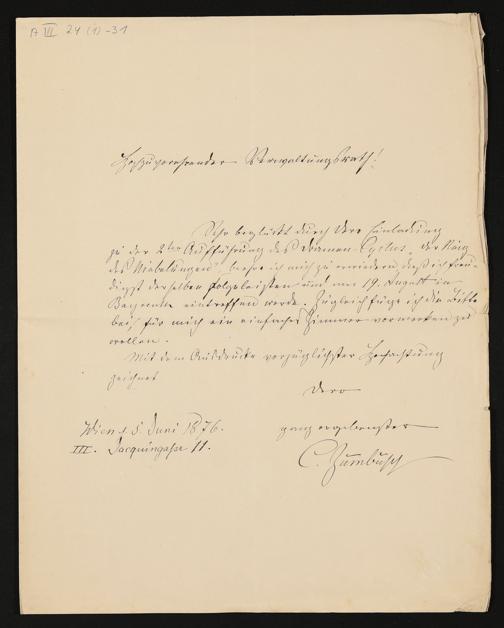 A VII 24 (1) -31
Hochzuverehrender Verwaltungsrath!
Sehr beglückt durch Ihre Einladung
zu der 2ten Aufführung des Dramen Cyclus „der Ring
des Niebelungen" beehre ich mich zu erwiedern, daß ich freu-
digst derselben folgeleisten und am 19. August in
Bayreuth eintreffen werde. Zugleich füge ich die Bitte
bei, für mich ein einfaches Zimmer vormerken zu
wollen.
Mit dem Ausdrucke vorzüglichster Hochachtung
zeichnet
Dero
ganz ergebenster
Wien d. 5. Juni 1876.
III. Jacquingasse 11.
C. Zumbusch